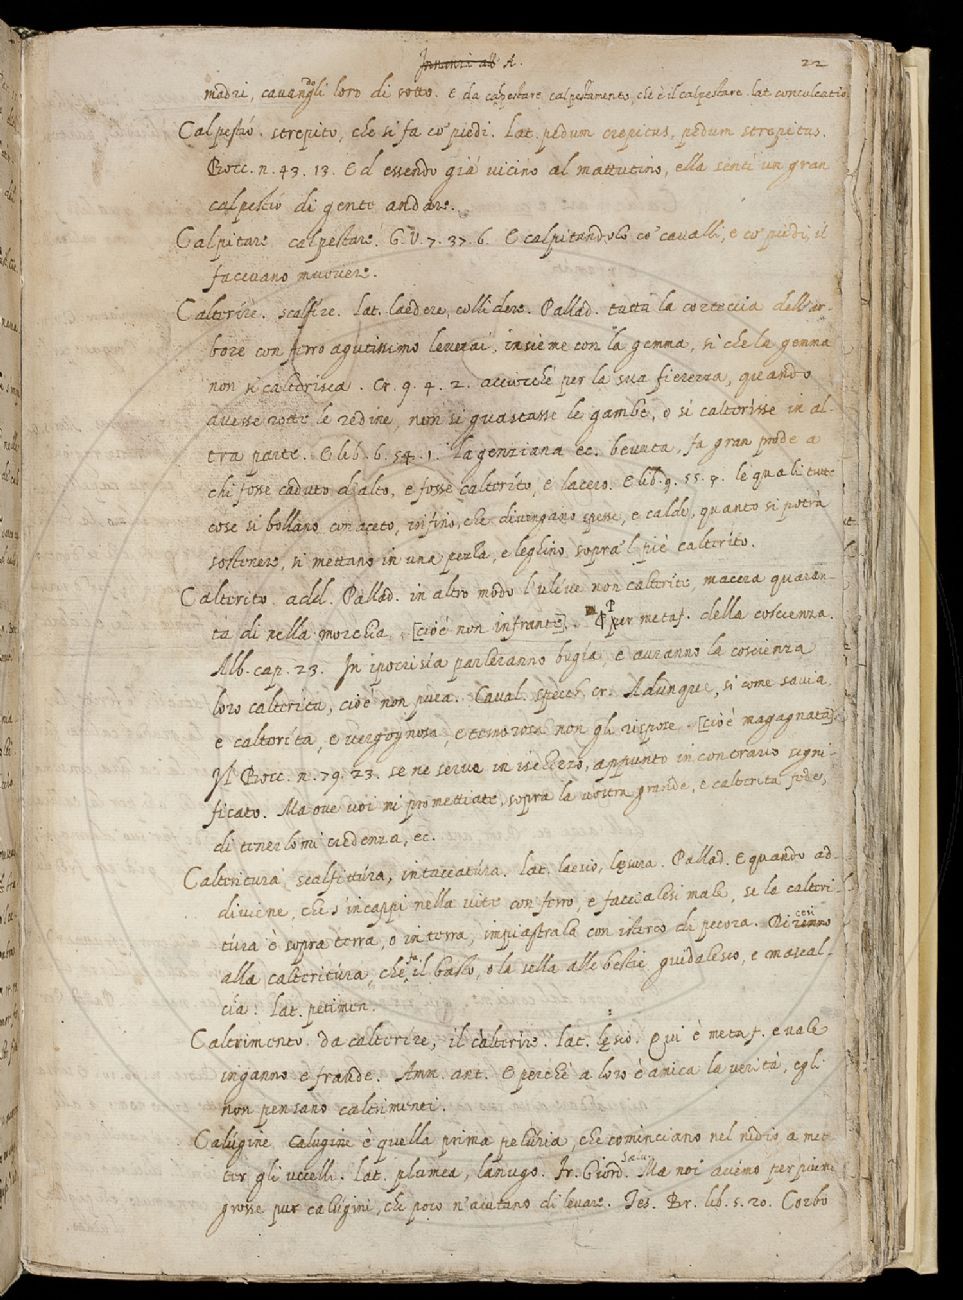 Innanzi all A. 22
madri, cavandogli loro di sotto. E da calpestare, calpestamento, che è il calpestare. lat. conculcatio
Calpestio. strepito, che si fa co' piedi. Lat. pedum crepitus, pedum strepitus.
Bocc. n. 43. 13. Ed essendo già vicino al mattutino, ella sentì un gran
calpestio di gente andare.
Calpitare calpestare. G. V. 7. 37. 6. E calpitandolo co' cavalli, e co' piedi, il
facevano muovere.
Calterire. scalfire. Lat. laedere, collidere. Pallad. tutta la corteccia dell'ar-
bore con ferro agutissimo leverai, insieme con la gemma, sì che la gemma
non si calterisca. Cr. 9. 4. 2. acciocchè per la sua fierezza, quando
avesse rotte le redine, non si guastasse le gambe, o si calterisse in al-
tra parte. E lib. 6. 54. 1. la genziana ec. bevuta, fa gran prode a
chi fosse caduto d'alto, e fosse calterito, e lacero. E lib. 9. 55. 9. le quali tutte
cose si bollano con aceto, infino, che divengano spesse, e calde, quanto si potrà
sostenere, si mettano in una pezza, e leghino sopra 'l piè calterito.
Calterito. add. Pallad. in altro modo l'ulive non calterite, macera quaran-
ta dì nella morchia. [cioè non infrante]. ¶ per metaf. della coscienza.
Alb. cap. 23. In ipocrisia parleranno bugia, e avranno la coscienza
loro calterita, cioè non pura. Caval. specch. cr. Adunque, sì come savia,
e calterita, e vergognosa, e temorosa non gli rispose. [cioè magagnata]
Il Bocc. n. 79. 23. se ne serve in ischerzo, appunto in contrario signi-
ficato. Ma ove voi mi promettiate, sopra la vostra grande, e calterita fede,
di tenerlomi credenza, ec.
Calteritura, scalfittura, intaccatura. Lat. laesio, lęsura. Pallad. E quando ad-
diviene, che s'incappi nella vite con ferro, e faccialesi male, se la calteri-
tura è sopra terra, o in terra, impiastrala con isterco di pecora. Diremmo così
alla calteritura, che fa il basto, o la sella alle bestie guidalesco, e mascal-
cia: Lat. petimen.
Calterimento. da calterire, il calterire. Lat. lęsio. Qui è metaf. e vale
inganno e fraude. Amm. ant. E perchè a loro è amica la verità, egli
non pensano calterimenti.
Calugine, Calugine è quella prima peluria, che cominciano nel nidio, a met-
ter gli uccelli. Lat. plumea, lanugo. Fr. Giord. Salv. Ma noi avemo per piume
grosse pur calugini, che poco n'aiutano di levare. Tes. Br. lib. 5. 20. Corbo